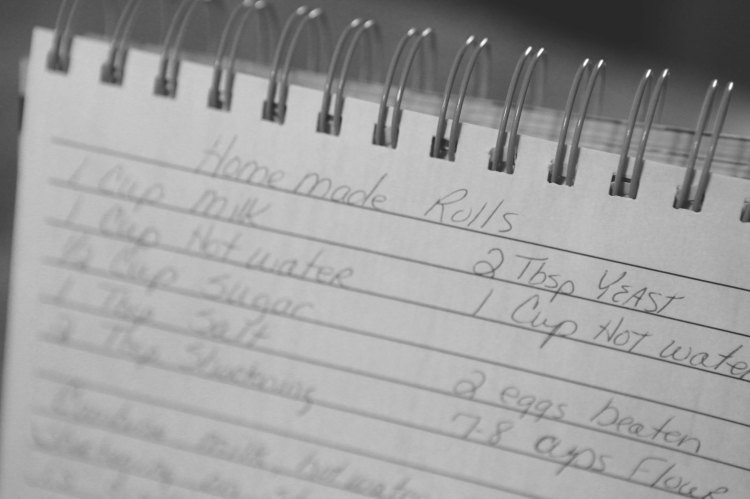 Homemade Rolls
1 Cup milk
1 Cup Hot water
1/2 Cup Sugar
1 Tbsp Salt
2 Tbsp Shortning
2 Tbsp YEAST
1 Cup Hot water
2 eggs beaten
7-8 cups Flour
Combine milk, hot water